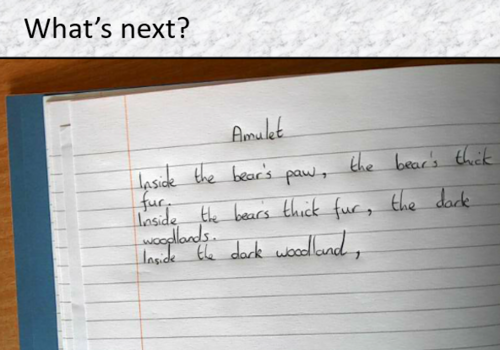 What's next?
Amulet
Inside the bear's paw, the bear's thick
fur.
Inside the bears thick fur, the dark
woodlands.
Inside the dark woodland,